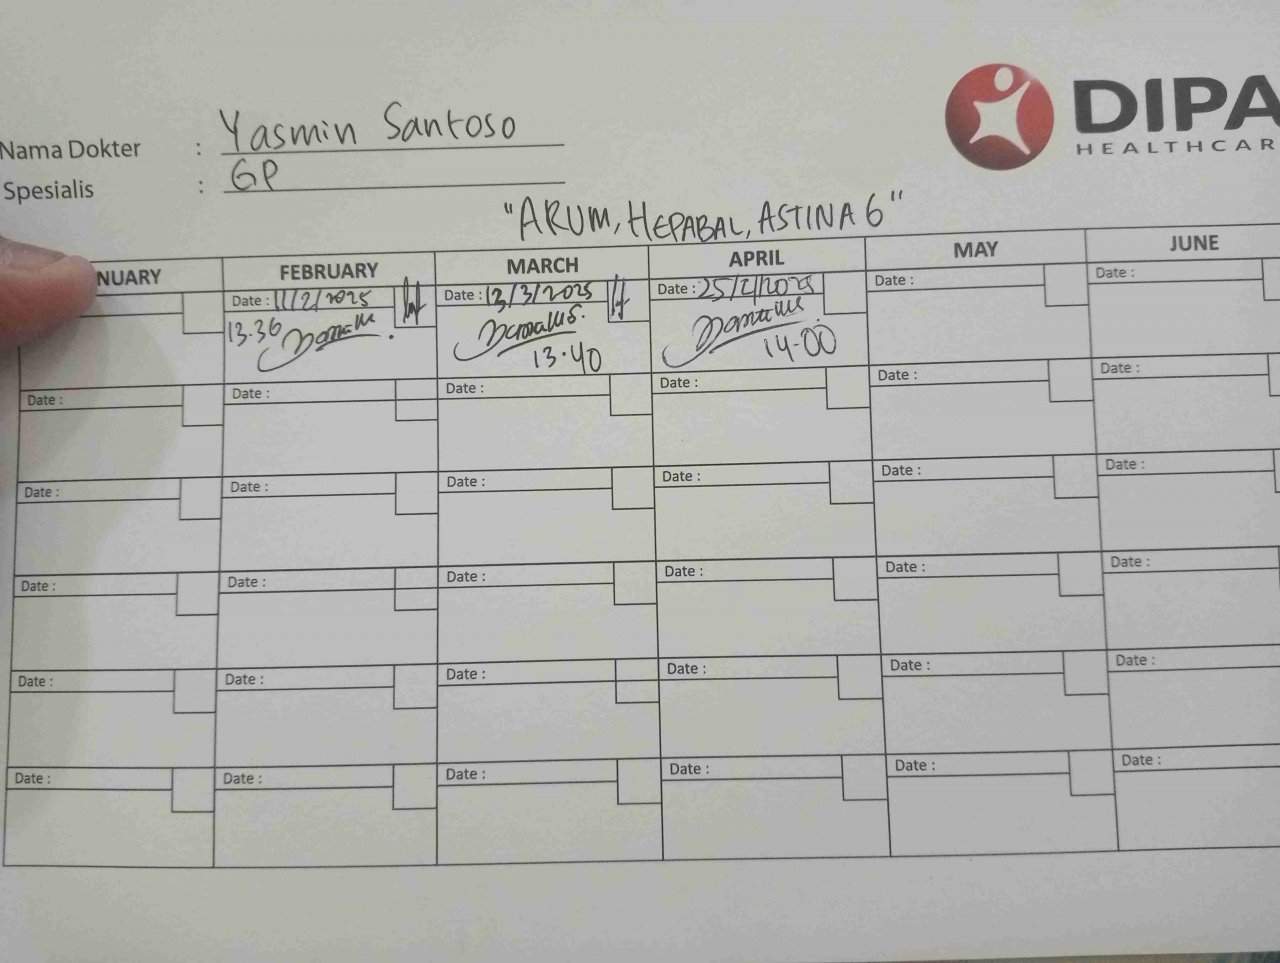 DIPA
HEALTHCAR
Nama Dokter : Yasmin Santoso
Spesialis : GP
"ARUM, HEPABAL, ASTINA 6"
NUARY FEBRUARY MARCH APRIL MAY JUNE
Date : 11/2/2025 Date : 13/3/2025 Date : 25/4/2025 Date : Date :
13.36 13.40 14.00
Date : Date : Date : Date : Date : Date :
Date : Date : Date : Date : Date : Date :
Date : Date : Date : Date : Date : Date :
Date : Date : Date : Date : Date : Date :
Date : Date : Date : Date : Date : Date :